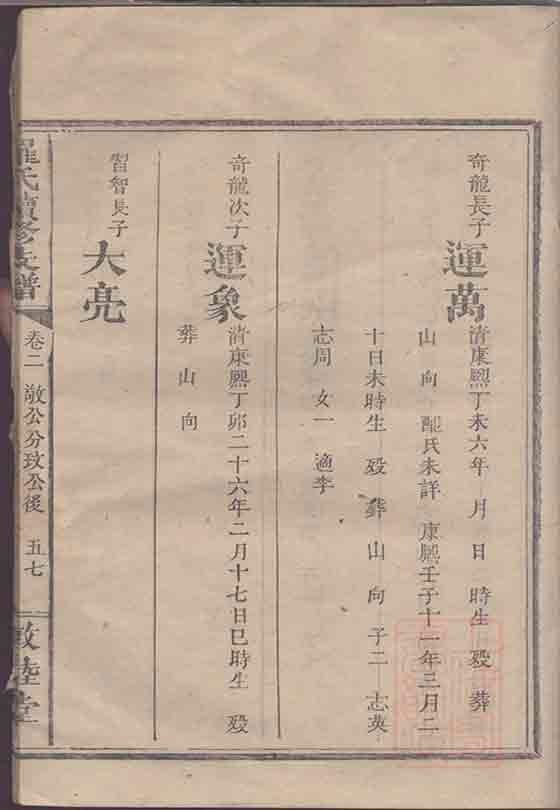 奇龍長子
運萬
清康熙丁未六年 月 日 時生 歿 葬
山 向 配氏未詳 康熙壬子十一年三月二
十日未時生 歿 葬 山 向 子二 志英
志周 女一 適李
奇龍次子
運象
清康熙丁卯二十六年二月十七日巳時生 歿
葬 山 向
習智長子
大亮
羅氏續修支譜
卷二 敞公分致公後 五七
敦睦堂